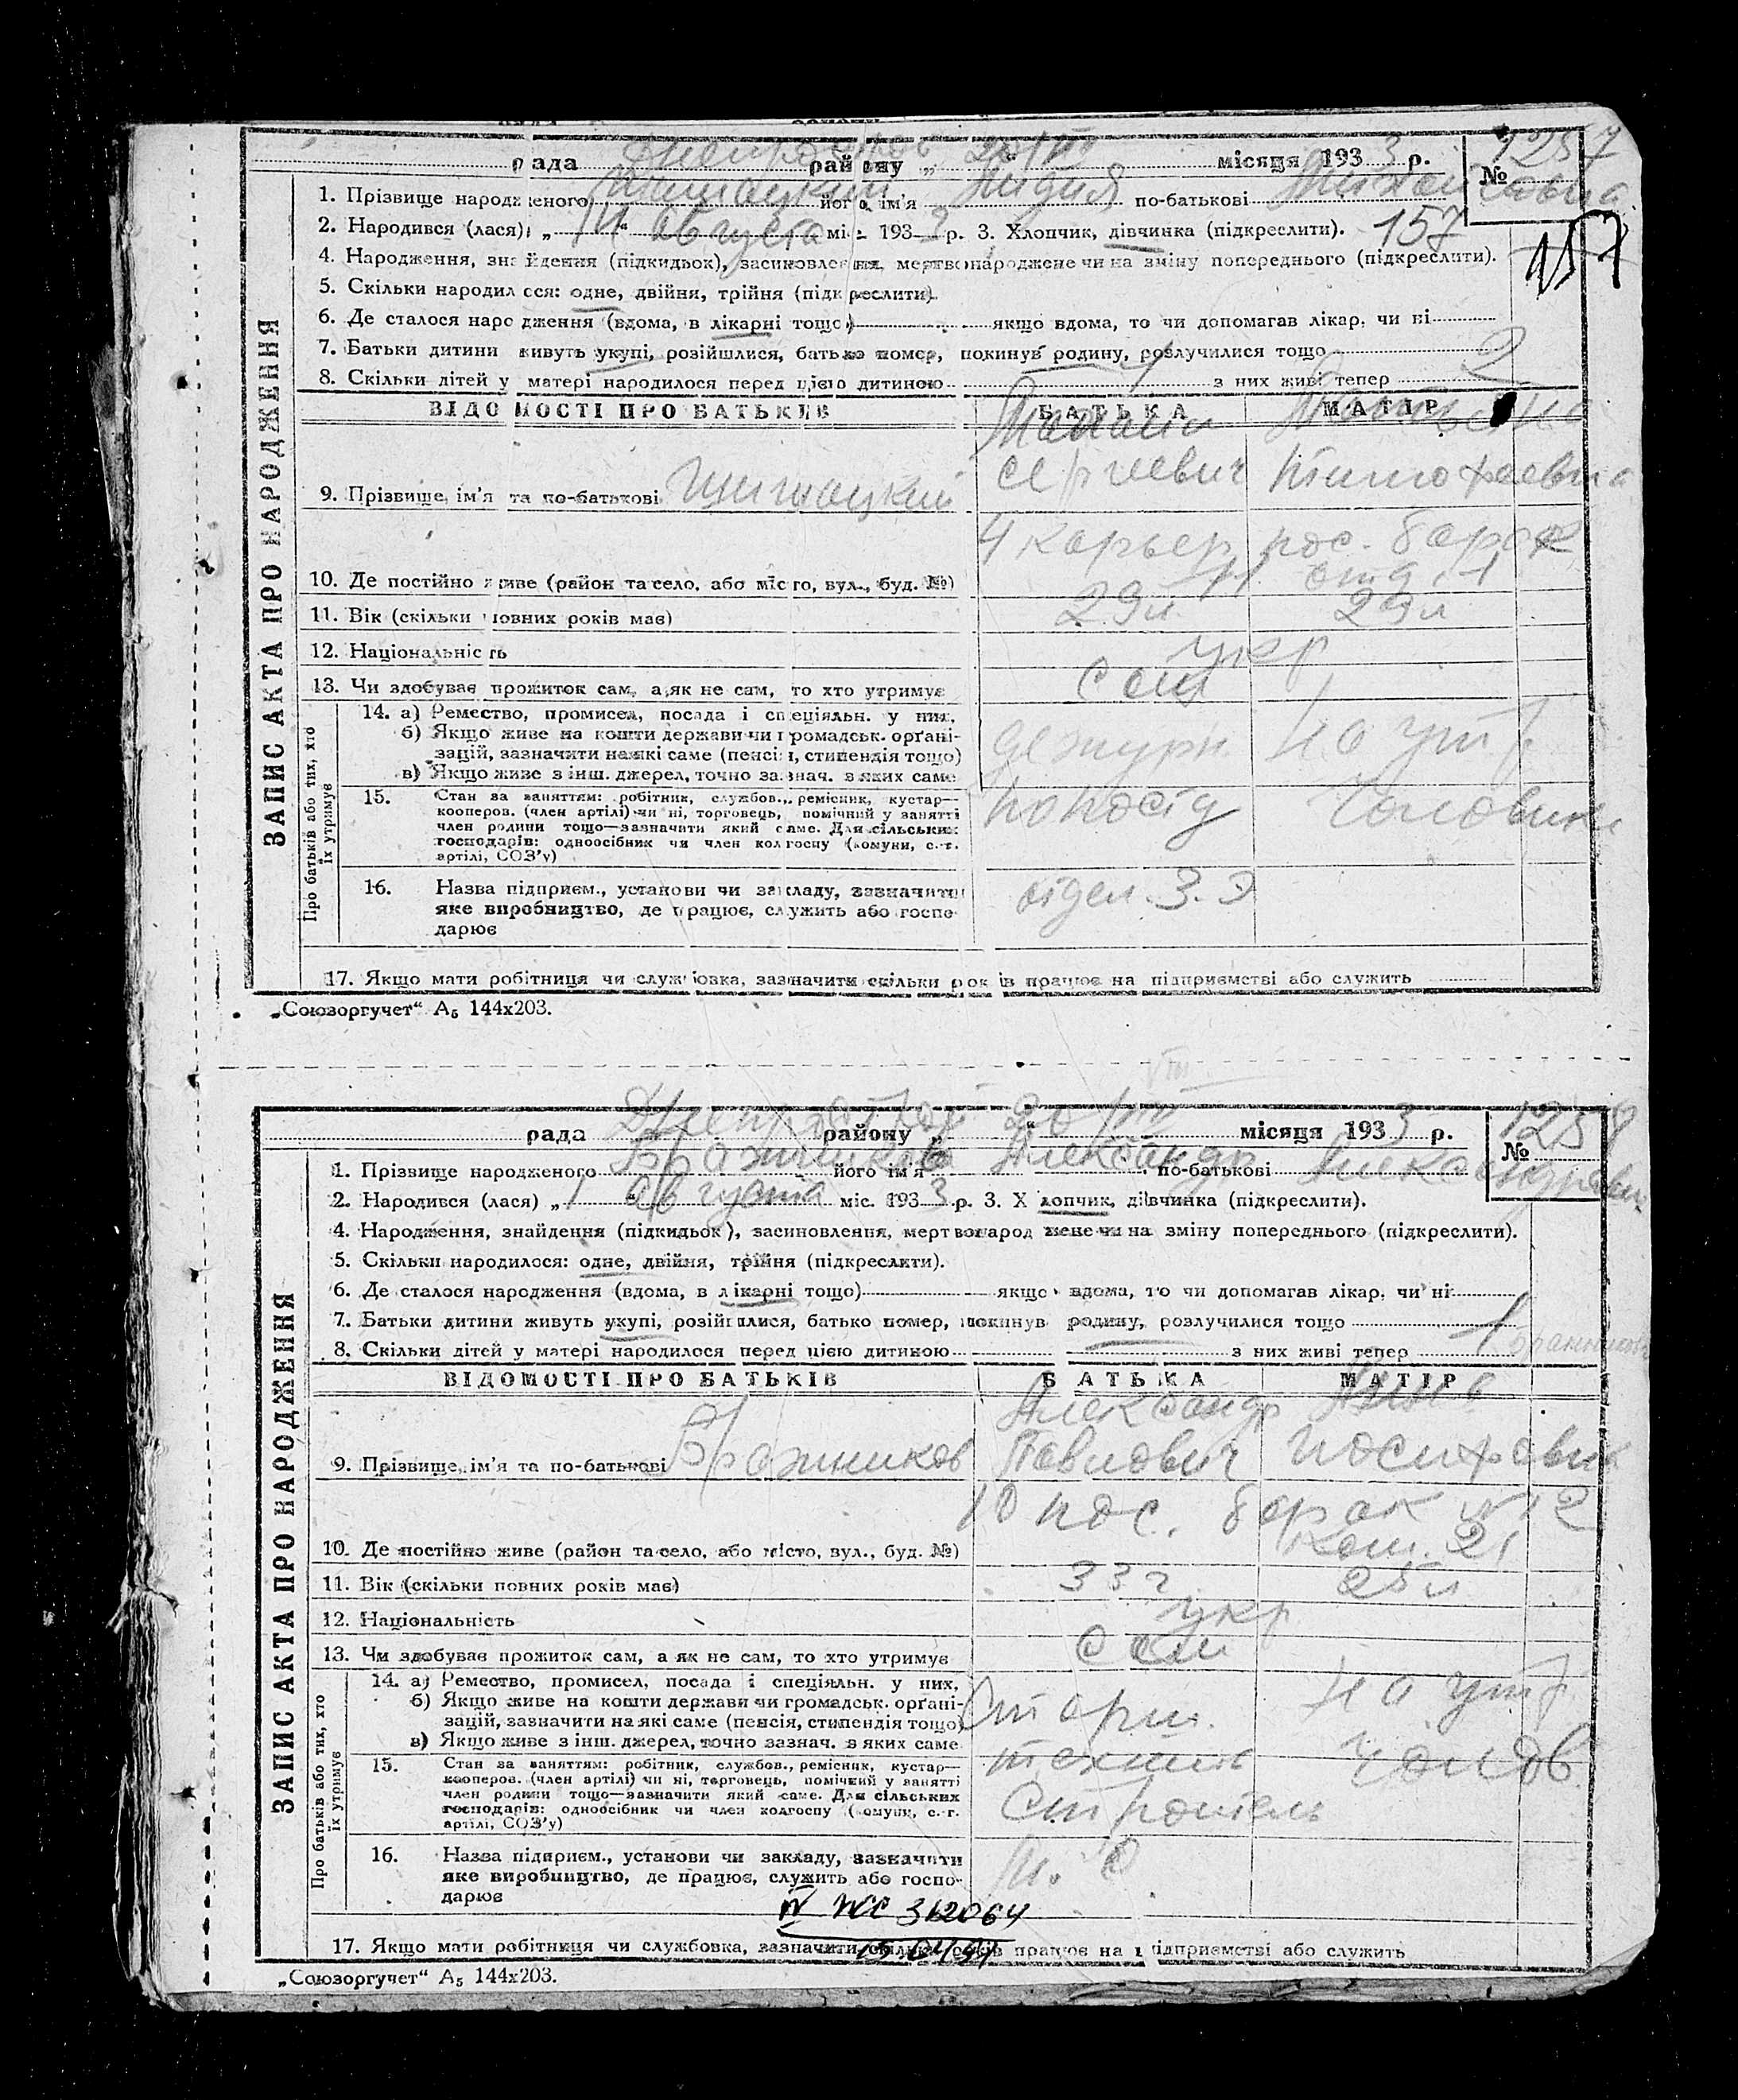 рада району „ 20/VIII “ місяця 1933 р. № 1257
1. Прізвище народженого його ім'я Лидия по-батькові
2. Народився (лася) „14“ августа міс. 1933 р. 3. Хлопчик, дівчинка (підкреслити). 157
157
4. Народження, знайдення (підкидьок), засиновлення, мертвонароджене чи на зміну попереднього (підкреслити).
5. Скільки народилося: одне, двійня, трійня (підкреслити).
6. Де сталося народження (вдома, в лікарні тощо) якщо вдома, то чи допомагав лікар, чи ні
7. Батьки дитини живуть укупі, розійшлися, батько помер, покинув родину, розлучилися тощо
8. Скільки дітей у матері народилося перед цією дитиною з них живі тепер 2
ВІДОМОСТІ ПРО БАТЬКІВ БАТЬКА МАТІР
9. Прізвище, ім'я та по-батькові Шишацкий Сергеевич Тимофеевна
4 карьер пос. барак
10. Де постійно живе (район та село, або місто, вул., буд. №) 11 отд. 1
11. Вік (скільки повних років має) 29 л 29 л
12. Національність укр
13. Чи здобуває прожиток сам, а як не сам, то хто утримує сам
ЗАПИС АКТА ПРО НАРОДЖЕННЯ
Про батьків або тих, хто їх утримує
14. а) Ремество, промисел, посада і спеціяльн. у них,
б) Якщо живе на кошти держави чи громадськ. органі-
зацій, зазначити на які саме (пенсія, стипендія тощо) дежурн на утр
в) Якщо живе з інш. джерел, точно зазнач. з яких саме
15. Стан за заняттям: робітник, службов., ремісник, кустар—
кооперов. (член артілі) чи ні, торговець, помічний у занятті
член родини тощо—зазначити який саме. Для сільських
господарів: одноосібник чи член колгоспу (комуни, с.-г.
артілі, СОЗ'у)
16. Назва підприєм., установи чи закладу, зазначити
яке виробництво, де працює, служить або госпо-
дарює
17. Якщо мати робітниця чи службовка, зазначити скільки років працює на підприємстві або служить
„Союзоргучет“ А₅ 144х203.
VIII
рада району „ 20/VIII “ місяця 1933 р. № 1258
1. Прізвище народженого Бражников його ім'я Александр по-батькові Александрович
2. Народився (лася) „1“ августа міс. 1933 р. 3. Хлопчик, дівчинка (підкреслити).
4. Народження, знайдення (підкидьок), засиновлення, мертвонароджене чи на зміну попереднього (підкреслити).
5. Скільки народилося: одне, двійня, трійня (підкреслити).
6. Де сталося народження (вдома, в лікарні тощо) якщо вдома, то чи допомагав лікар, чи ні
7. Батьки дитини живуть укупі, розійшлися, батько помер, покинув родину, розлучилися тощо
8. Скільки дітей у матері народилося перед цією дитиною з них живі тепер 1
ВІДОМОСТІ ПРО БАТЬКІВ БАТЬКА МАТІР
Александр
9. Прізвище, ім'я та по-батькові Бражников Павлович Иосифовна
10 пос. барак №12
10. Де постійно живе (район та село, або місто, вул., буд. №) ком. 21
11. Вік (скільки повних років має) 33 г. 25 л
12. Національність укр
13. Чи здобуває прожиток сам, а як не сам, то хто утримує сам
ЗАПИС АКТА ПРО НАРОДЖЕННЯ
Про батьків або тих, хто їх утримує
14. а) Ремество, промисел, посада і спеціяльн. у них,
б) Якщо живе на кошти держави чи громадськ. органі-
зацій, зазначити на які саме (пенсія, стипендія тощо) старш. на утр
в) Якщо живе з інш. джерел, точно зазнач. з яких саме
15. Стан за заняттям: робітник, службов., ремісник, кустар— техник чолов
кооперов. (член артілі) чи ні, торговець, помічний у занятті
член родини тощо—зазначити який саме. Для сільських строитель
господарів: одноосібник чи член колгоспу (комуни, с.-г.
артілі, СОЗ'у)
16. Назва підприєм., установи чи закладу, зазначити
яке виробництво, де працює, служить або госпо-
дарює
IV ЖС 312064
17. Якщо мати робітниця чи службовка, зазначити скільки років працює на підприємстві або служить
„Союзоргучет“ А₅ 144х203.